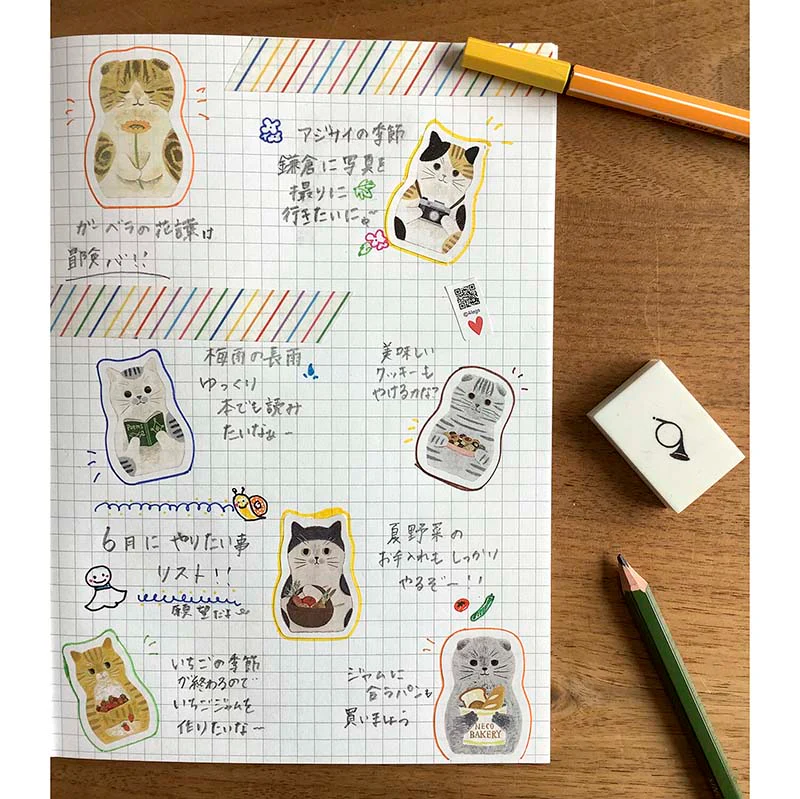 アジサイの季節
鎌倉に写真を
撮りに
行きたいに。
ガーベラの花言葉は
冒険心!!
©Aiega
梅雨の長雨
ゆっくり
本でも読み
たいなぁー
Poems
美味しい
クッキーも
やけるかな?
6月にやりたい事
リスト!!
願望だよ
夏野菜の
お手入れも しっかり
やるぞー!!
いちごの季節
が終わるので
いちごジャムを
作りたいな〜
ジャムに
合うパンも
買いましょう
NECO
BAKERY